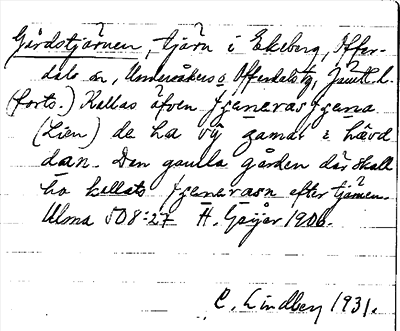 Gårdstjärnen, tjärn i Ekeberg, Offer-
dals sn, Undersåkers o Offerdals tg, Jämtl. l.
(forts.) Kallas äfven
(Lien) de ha vý
dan. Den gamla gården där skall
ha kallats efter tjärnen.
Ulma 508:27 H. Geijer 1906.
C. Lindberg 1931.